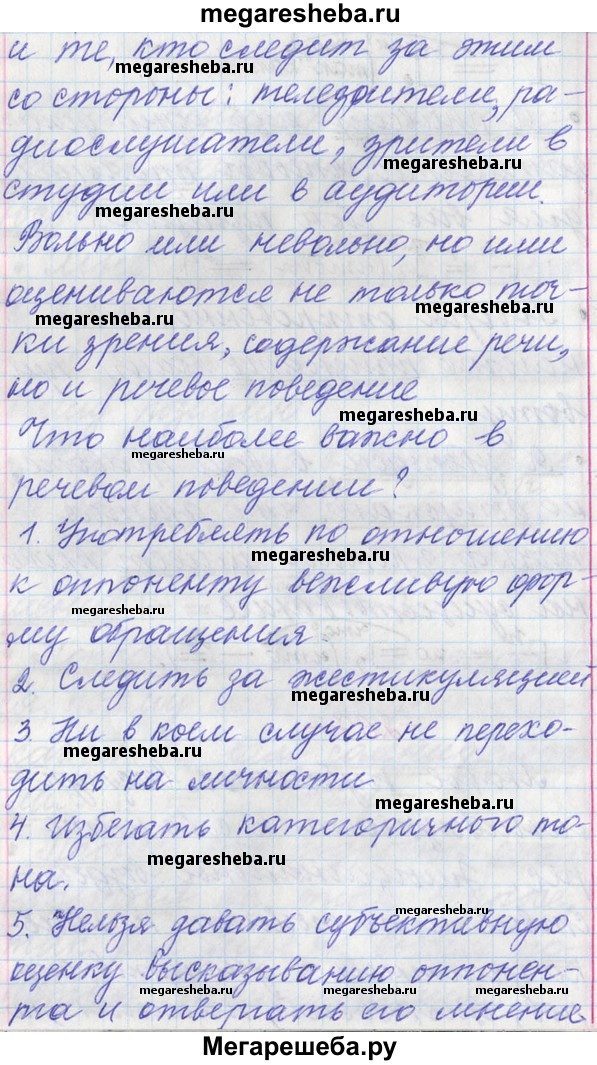 megaresheba.ru
и те, кто следит за этим
megaresheba.ru
со стороны: телезрители, ра-
диослушатели, зрители в
megaresheba.ru
студии или в аудитории.
megaresheba.ru
Вольно или невольно, но ими
оцениваются не только точ-
megaresheba.ru
ки зрения, содержание речи,
но и речевое поведение
megaresheba.ru
Что наиболее важно в
megaresheba.ru
речевом поведении?
1. Употреблять по отношению
megaresheba.ru
к оппоненту вежливую фор-
megaresheba.ru
му обращения
2. Следить за жестикуляцией
megaresheba.ru
3 Ни в коем случае не перехо-
megaresheba.ru
дить на личности
megaresheba.ru
4. Избегать категоричного то-
megaresheba.ru
на.
megaresheba.ru
5. Нельзя давать субъективную
оценку высказыванию оппонен-
megaresheba.ru megaresheba.ru megaresheba.ru
та и отвергать его мнение
Мегарешеба.ру